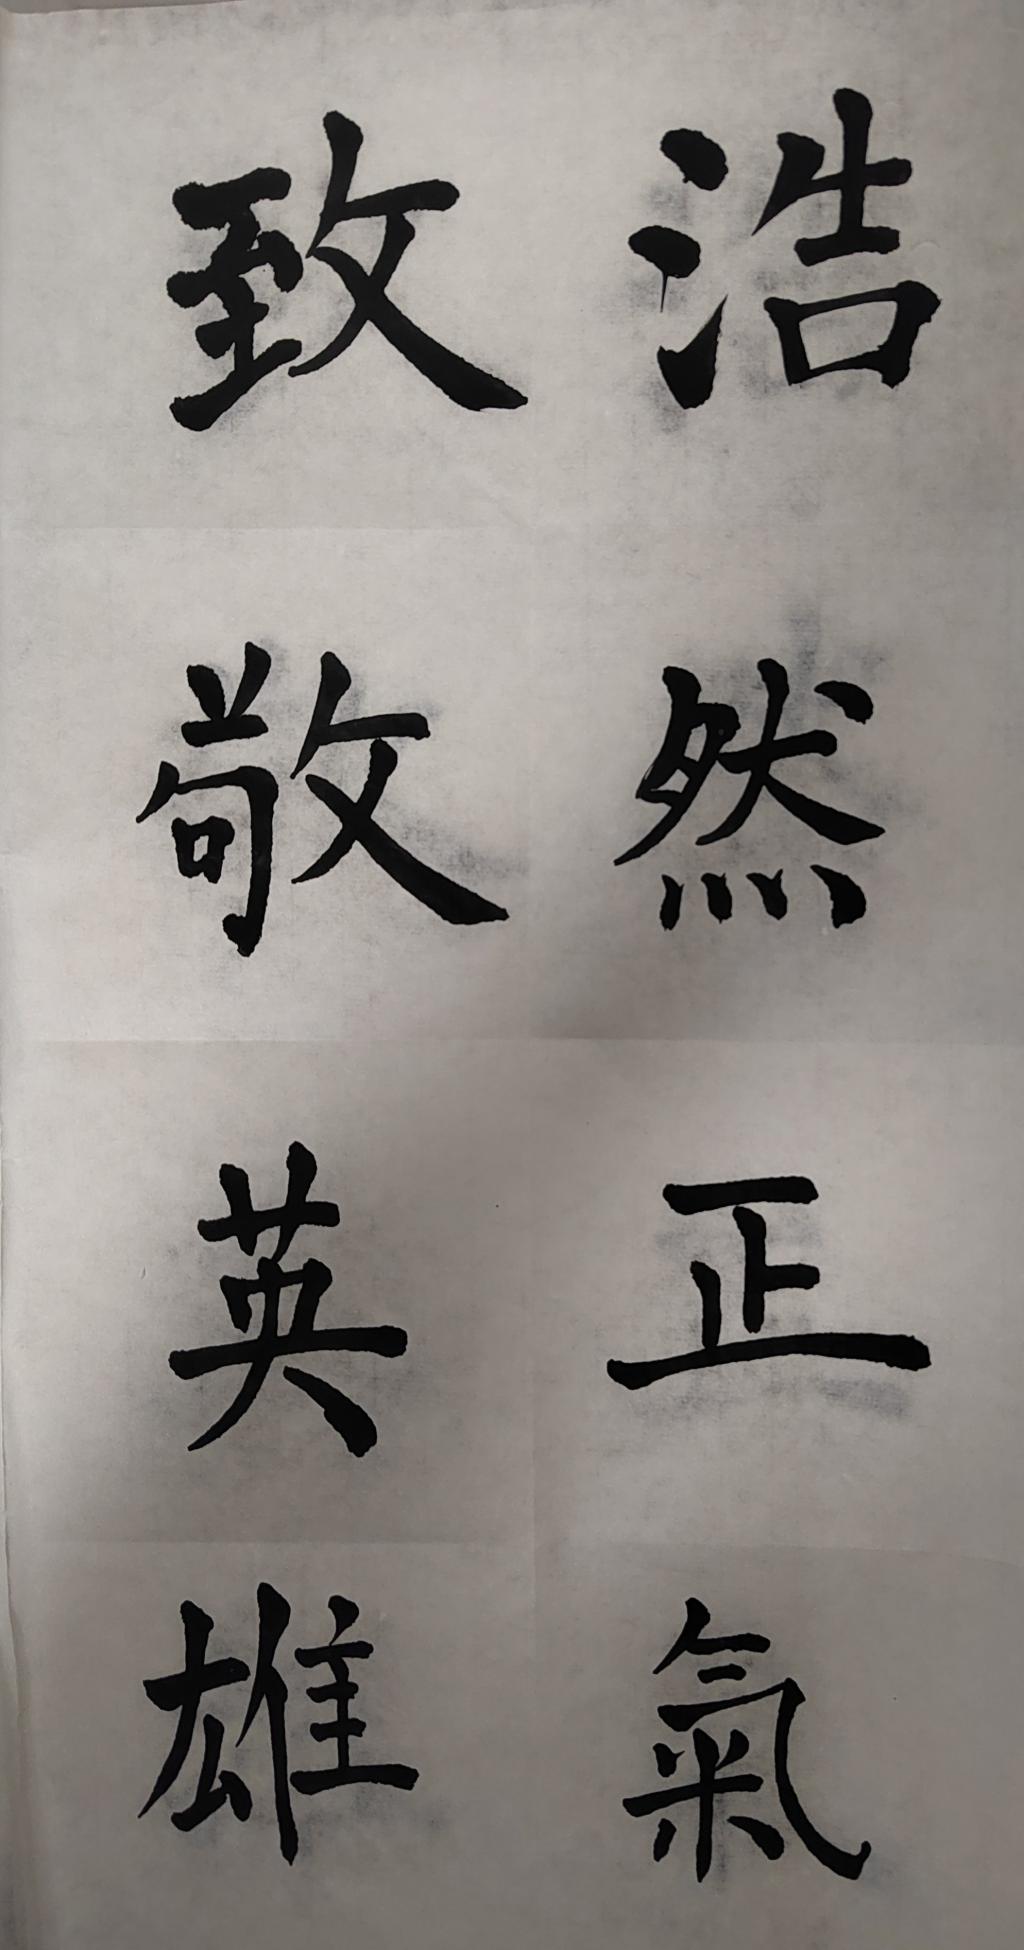 浩然正氣
致敬英雄